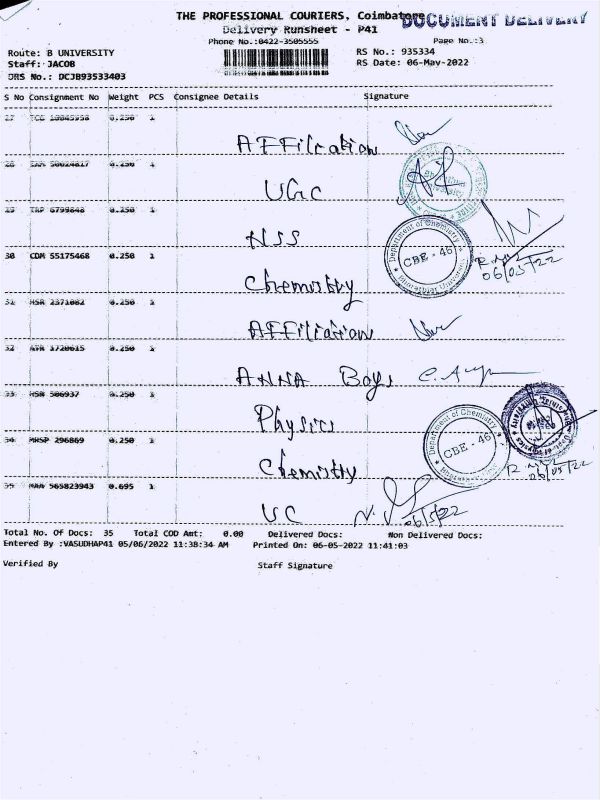 THE PROFESSIONAL COURIERS, Coimbatore
DOCUMENT DELIVERY
Delivery Runsheet - P41
Phone No.:0422-3505555
Page No.:3
Route: B UNIVERSITY
RS No.: 935334
Staff: JACOB
RS Date: 06-May-2022
DRS No.: DCJB93533403
S No Consignment No Weight PCS Consignee Details Signature
0.250 1
Affiliation
28 0.250 1
UGC
29 TRP 6799848 0.250 1
NSS
Department of Chemistry
CBE - 46
06/05/22
30 CDM 55175468 0.250 1
Chemistry
31 HSR 2371082 0.250 1
Affiliation
32 1720615 0.250 1
ANNA Boys
33 HSN 506937 0.250 1
Physics
34 MRSP 296869 0.250 1
Chemistry
Department of Chemistry
CBE - 46
06/05/22
35 MAA 565823943 0.695 1
UC
06/5/22
Total No. Of Docs: 35 Total COD Amt: 0.00 Delivered Docs: Non Delivered Docs:
Entered By :VASUDHAP41 05/06/2022 11:38:34 AM Printed On: 06-05-2022 11:41:03
Verified By Staff Signature